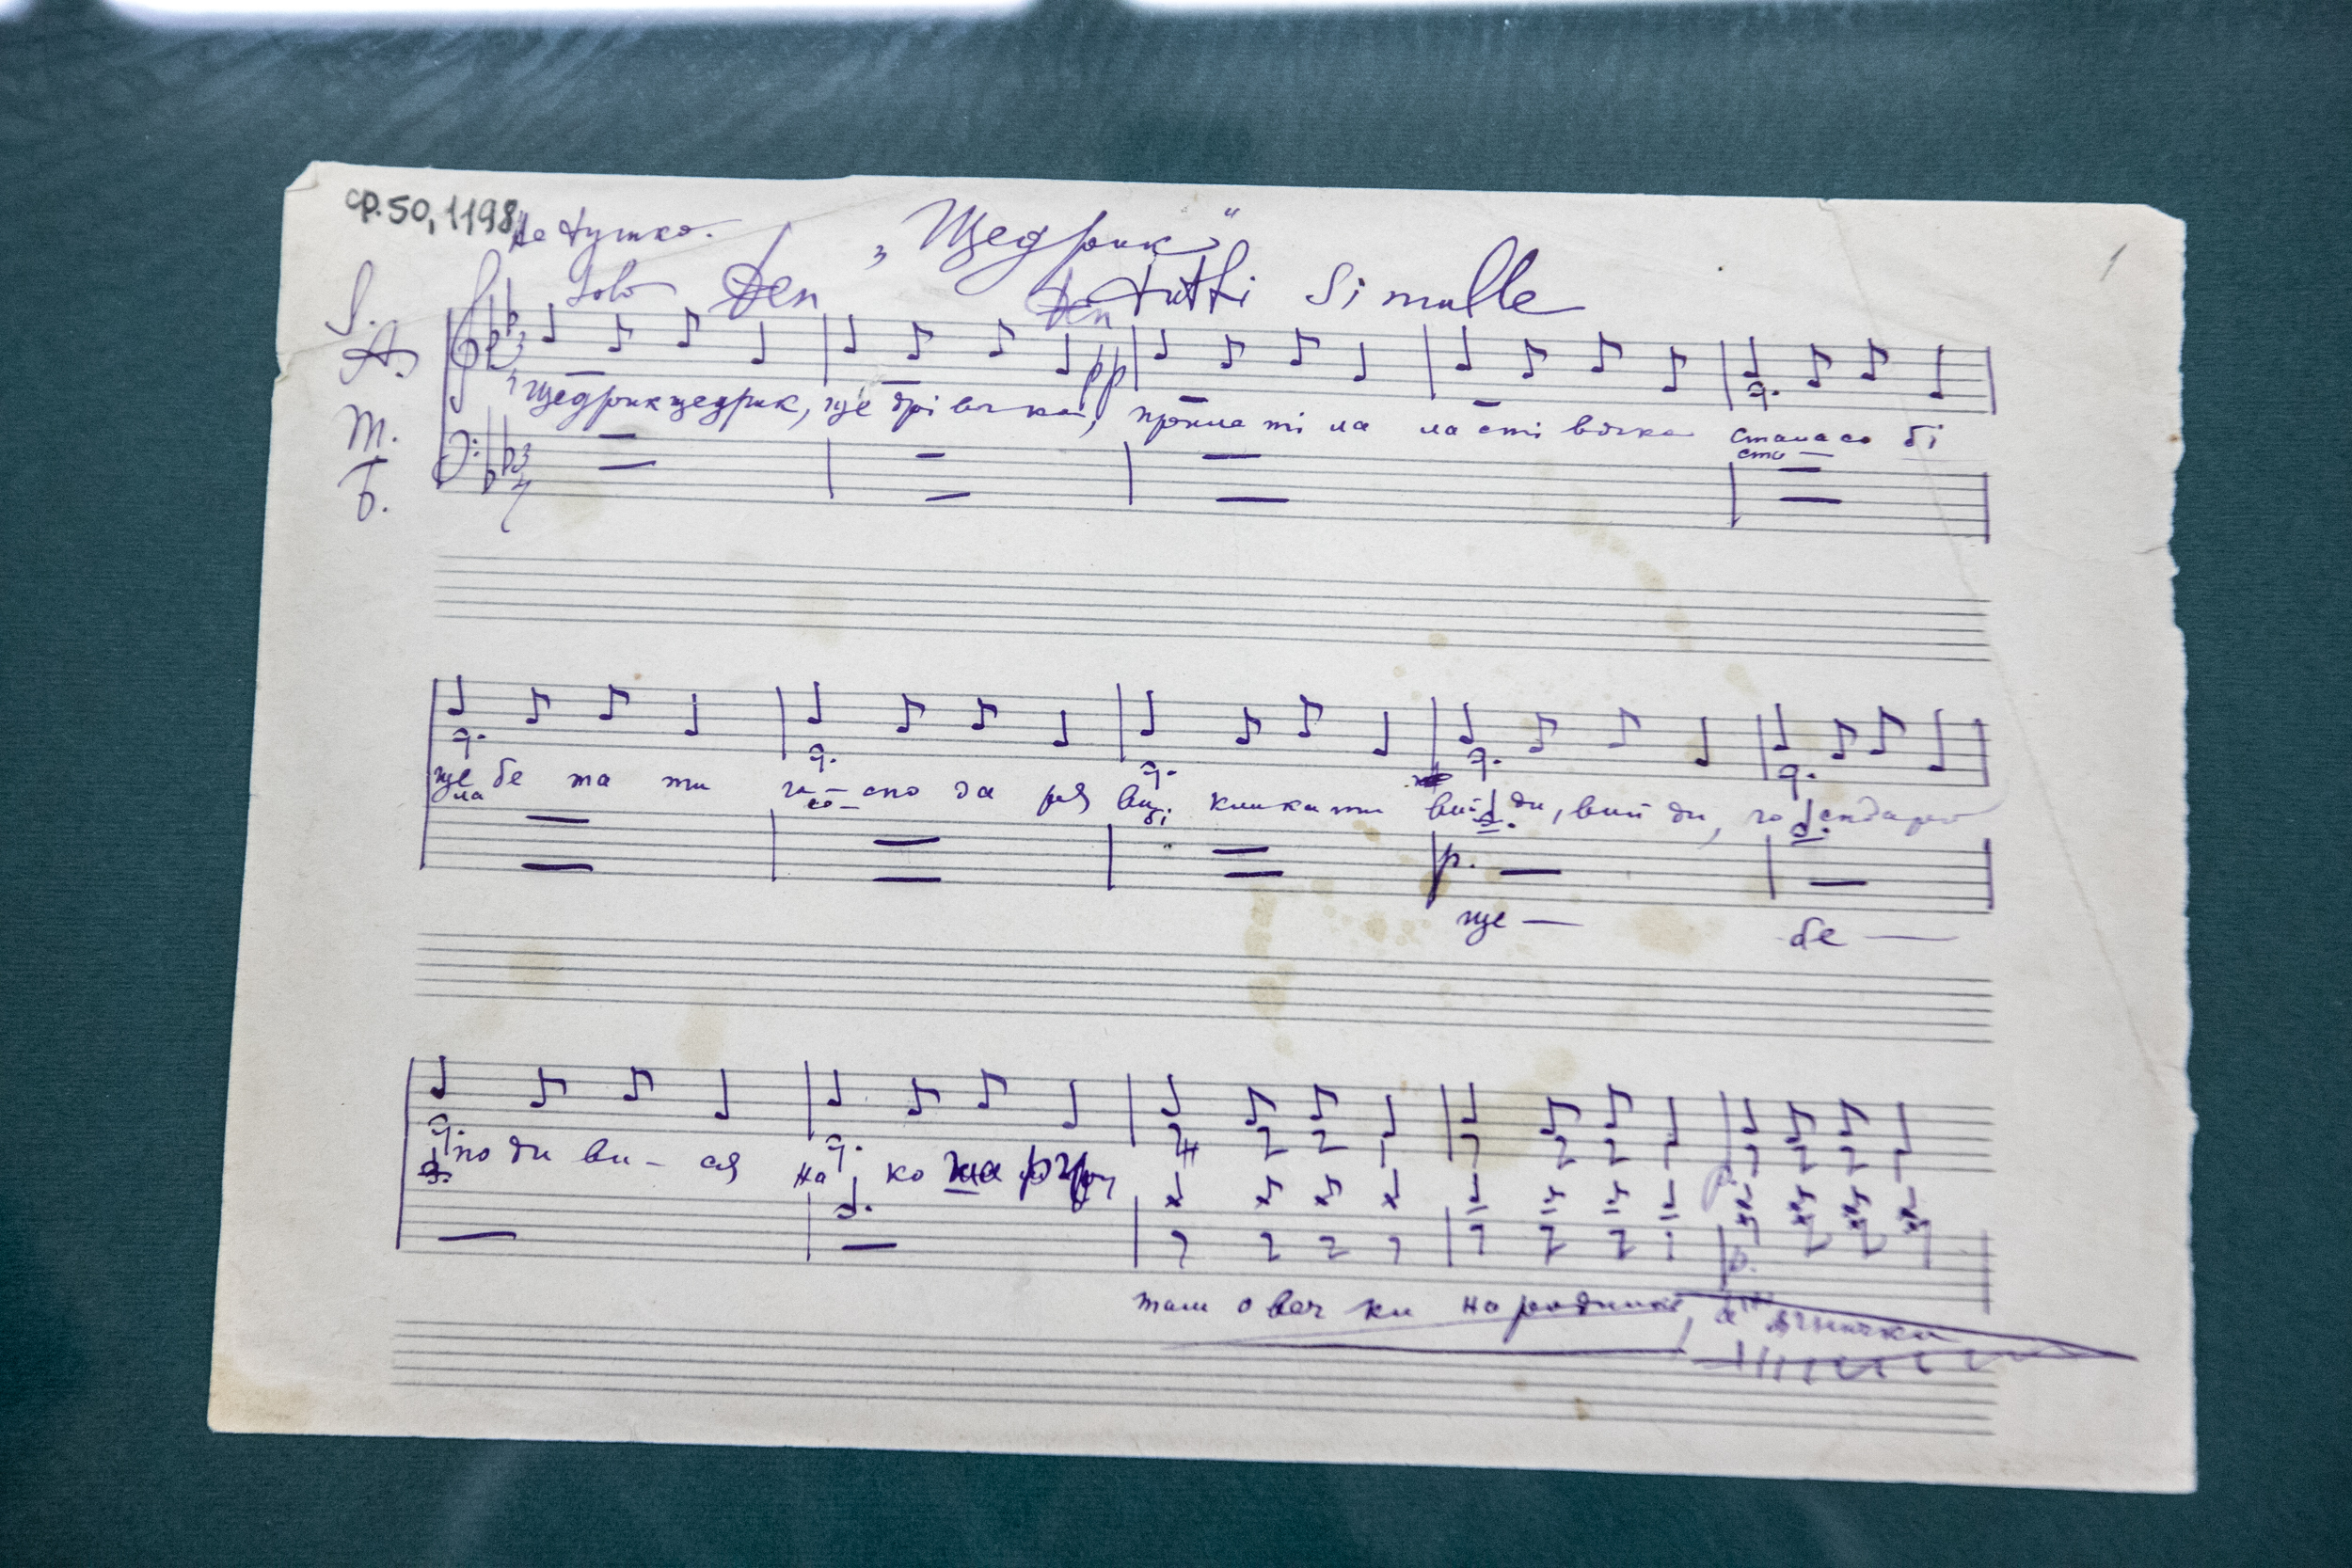 ср. 50, 1198
„Щедрик“
Solo tutti Simulle
S.
А.
pp
Щедрик щедрик, ще дрі вочка, прилетіла ластівочка стала со бі
ста —
Т.
Б.
ще бе та ти го — спо да ря ви кликати вий ди, вий ди, го сподарю
ла со — бі
p.
ще — бе —
по ди ви — ся на ко ша ру,
p.
там овечки на родились, а ягнички
1